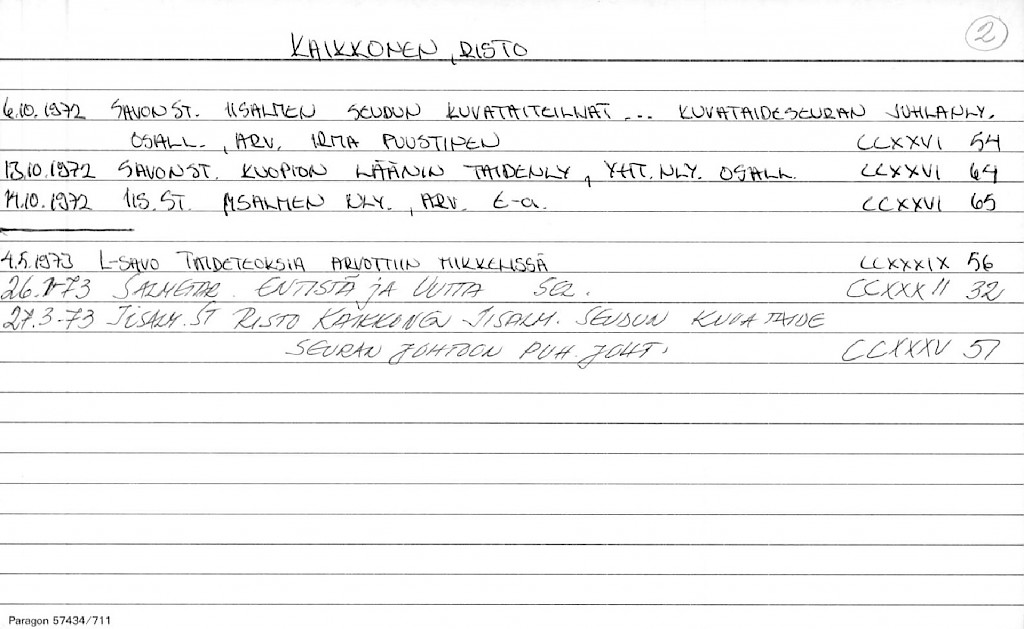 2
KAIKKONEN, RISTO
6.10.1972 SAVON ST. IISALMEN SEUDUN KUVATAITEILIJAT ... KUVATAIDESEURAN JUHLANLY.
OSALL., ARV. IRMA PUUSTINEN CCXXVI 54
13.10.1972 SAVON ST. KUOPION LÄÄNIN TAIDENLY, YHT. NLY. OSALL. CCXXVI 64
14.10.1972 IIS. ST. IISALMEN NLY., ARV. E-a. CCXXVI 65
4.5.1973 L-SAVO TAIDETEOKSIA ARVOTTIIN MIKKELISSÄ CCXXXIX 56
26.1-73 SALMETAR. ENTISTÄ JA UUTTA SEL. CCXXXII 32
27.3-73 IISALM. ST RISTO KAIKKONEN IISALM. SEUDUN KUVATAIDE
SEURAN JOHTOON PUH. JOHT. CCXXXV 51
Paragon 57434/711